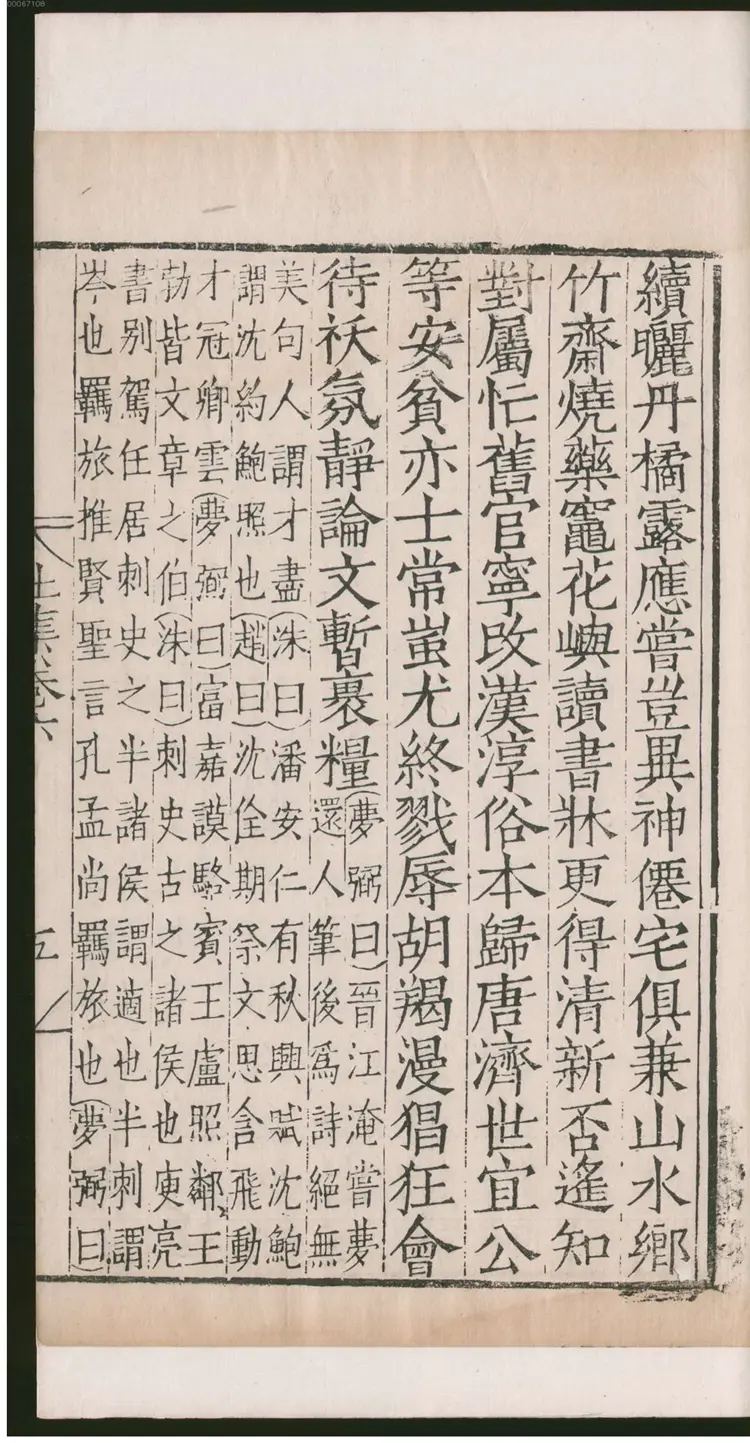 00067108
續曬丹橘露應嘗豈異神僊宅俱兼山水鄉
竹齋燒藥竈花嶼讀書牀更得清新否遙知
對屬忙舊官寧改漢淳俗本歸唐濟世宜公
等安貧亦士常蚩尤終戮辱胡羯漫猖狂會
待祅氛靜論文暫裹糧
夢弼曰晉江淹嘗夢
還人筆後爲詩絕無
美句人謂才盡洙曰潘安仁有秋興賦沈鮑
謂沈約鮑照也趙曰沈佺期祭文思含飛動
才冠卿雲夢弼曰富嘉謨駱賓王盧照鄰王
勃皆文章之伯洙曰刺史古之諸侯也庾亮
書别駕任居刺史之半諸侯謂適也半刺謂
岑也羈旅推賢聖言孔孟尚羈旅也夢弼曰
杜集卷六
五